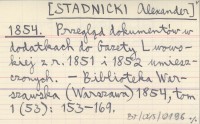 [STADNICKI Alexander]
1854. Przegląd dokumentów w
dodatkach do Gazety Lwows-
kiej z r. 1851 i 1852 umiesz-
czonych. – Biblioteka War-
szawska (Warszawa) 1854, tom
1 (53): 153-169.